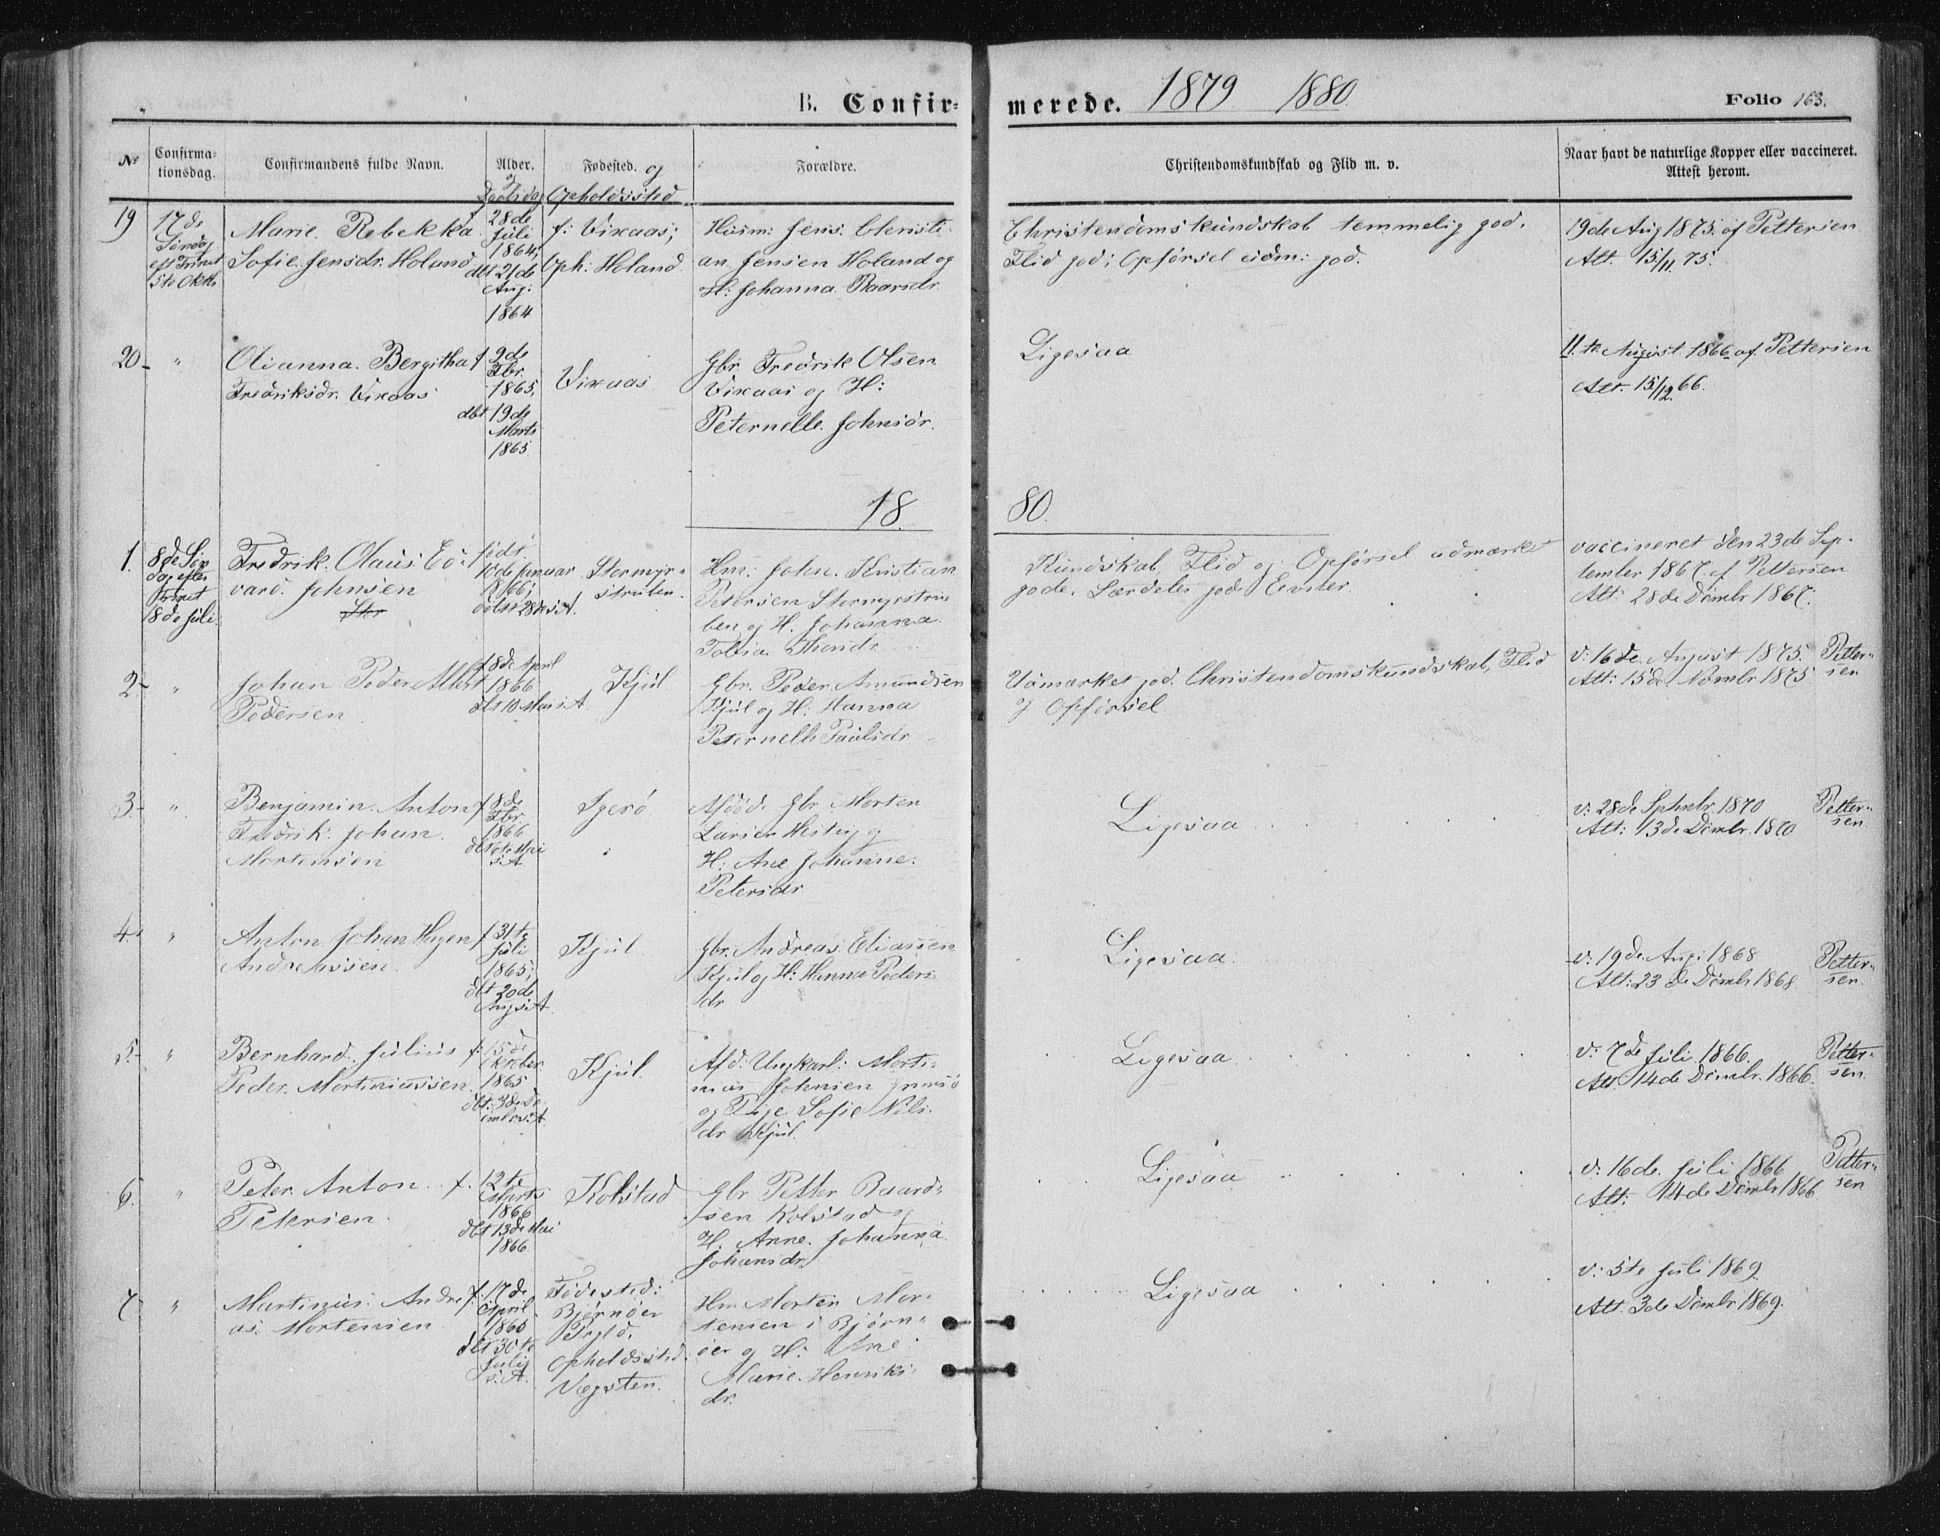 B. Confir-
merede. 1879 1880.
Folio 163.
No
Confirma-
tionsdag.
Confirmandens fulde Navn.
Alder.
og
Daabsdag
Fødested. og
Opholdssted
Forældre.
Christendomskundskab og Flid m. v.
Naar havt de naturlige Kopper eller vaccineret.
Attest herom.
19
17de
Søndag
eft Trinit
5te Oktb
Marie Rebekka
Sofie Jensdr. Holand
28de
Juli
1864,
dbt 21de
Aug:
1864
f: Vikaas;
Oph: Holand.
Husm: Jens Christi-
an Jensen Holand og
H: Johanna Baarsdr
Christendomskundskab temmelig god.
Flid god; Opførsel udm: god.
19de Aug 1875 af Pettersen
Att. 15/11 75.
20 -
"
Olianna Bergitha
Fredriksdr. Vikaas
f 9de
Fbr.
1865,
dbt 19de
Marts
1865
Vikaas
Gbr. Fredrik Olsen
Vikaas og H:
Peternelle Johnsdr.
Ligesaa
11te August 1866 af Pettersen
Att. 15/12 66.
18
80.
1.
8de Søn-
dag efter
Trinit
18de Juli
Fredrik Olaus Ed-
vard Johnsen
født
10de Januar
1866,
døbt 28de s.A.
Stormyr-
struten.
Hm: John Kristian
Petersen Stormyrstru-
ten og H. Johanna
Kundskab, Flid og Opførsel udmærket
gode. Særdeles gode Evner
vaccineret den 23de Sep-
tember 1867 af Pettersen
Att: 28de Dcmbr 1867.
2 -
"
Johan Peder Albert
Pedersen
f 8de April
1866
dbt 10 Mai s.A.
Kjul
Gbr. Peder Amundsen
Kjul og H: Hanna
Peternelle Paulsdr
Udmærket god Christendomskundskab, Flid
og Opførsel
v: 16de August 1875. Petter-
Att: 15de Novmbr 1875 sen
3 -
"
Benjamin Anton
Fredrik Johan
Mortensen
f 8de
Fbr
1866
s.A
Igerø
Afdød. Gbr Morten
H: Ane Johanne
Petersdr
Ligesaa
v: 28de Sptmbr 1870 Petter-
Att: 13de Dcmbr. 1870 sen
4.
"
Anton Johan Hagen
Andreassen
f 31te
Juli
1865;
dbt 20de
Aug s.A.
Kjul
Gbr. Andreas Eliassen
Kjul og H: Hanna Peders-
dr
Ligesaa
v: 19de Aug: 1868 Petter-
Att: 23de Dcmbr 1868 sen.
5. -
"
Bernhard Julius
Peder Mortinussen
f. 15de
Oktober
1865
dbt. 3de De-
cmbr s.A
Kjul.
Afd. Ungkarl: Morti-
nus Johnsen
og Pige Sofie Nils-
dr Kjul.
Ligesaa
v: 7de Juli 1866. Petter-
Att 14de Dcmbr. 1866. sen
6.
"
Peter Anton
Petersen.
f. 12te
Marts
1866
dbt 13de Mai
1866
Kolstad
Gbr Petter Baard-
sen Kolstad og
H. Anne Johanna
Johansdr.
Ligesaa
v: 16de Juli 1866 Petter-
Att: 14de Dcmbr 1866 sen
7
"
Martinus Andre-
as Mortensen
f. 17de
April
1865
dbt 30te
Juli
s.A.
Fødested:
Bjørnøer
Prgld.
Opholdssted
Vegsten.
Hm Morten Mor-
tensen i Bjørn-
øer og H: Ane
Marie Henriks-
dr.
Ligesaa
v: 5te Juli 1869.
Att. 3de Dcmbr 1869.